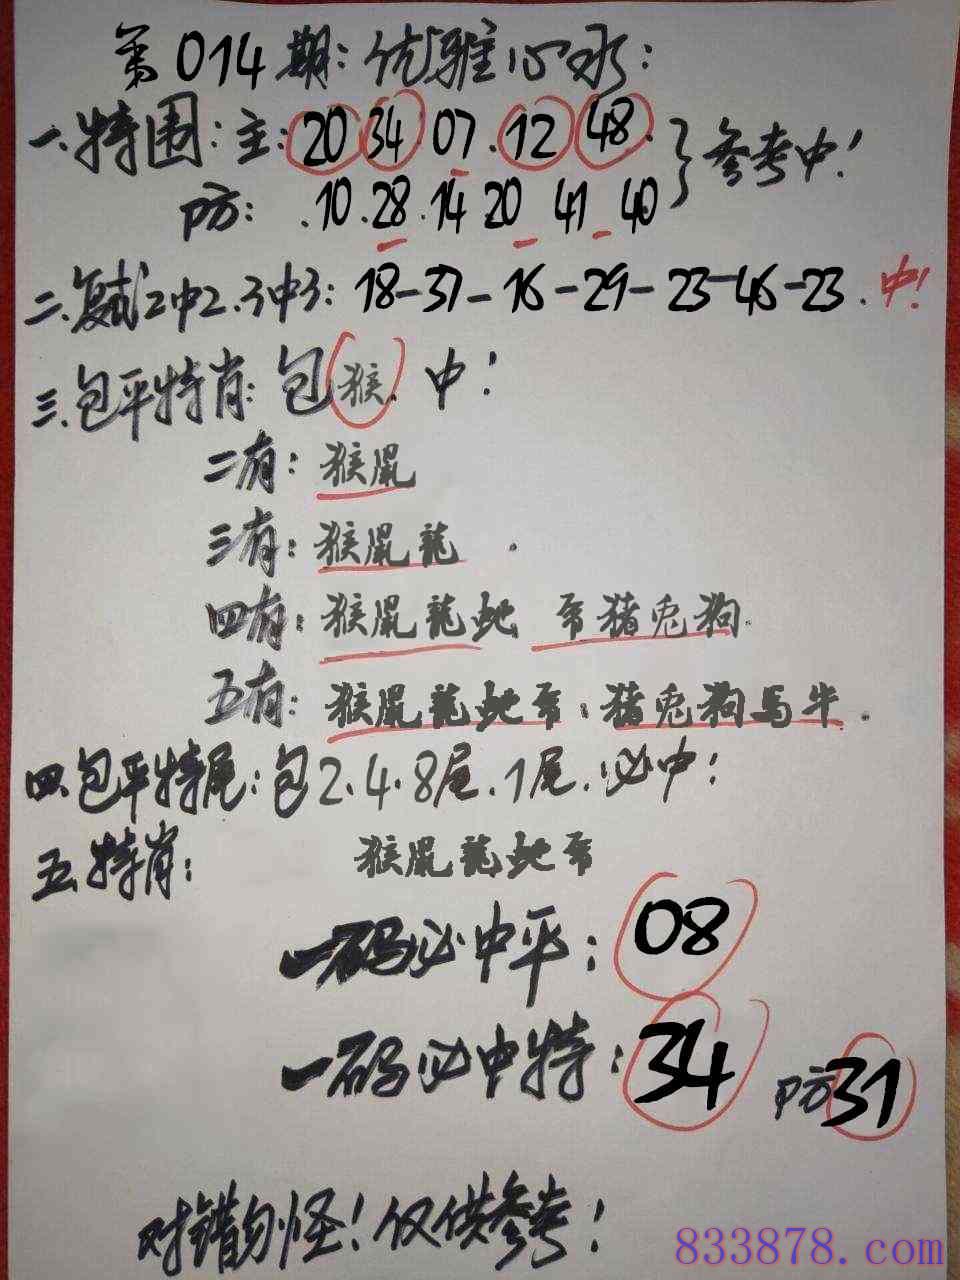 第014期：优雅心水：
一.特围：主：20 34 07.12 48.
防：.10.28.14 20 41 40
参考中！
二.复式2中2.3中3：18-37-16-29-23-46-23.中！
三.包平特肖：包猴.中！
二有：猴鼠
三有：猴鼠龍.
四有：猴鼠龍蛇 猪兔狗.
五有：猴鼠龍蛇 猪兔狗馬牛.
四.包平特尾：包2.4.8尾.1尾.必中！
五.特肖：猴鼠龍蛇
一码必中平：08
一码必中特：34 防31
对错勿怪！仅供参考！
833878.com